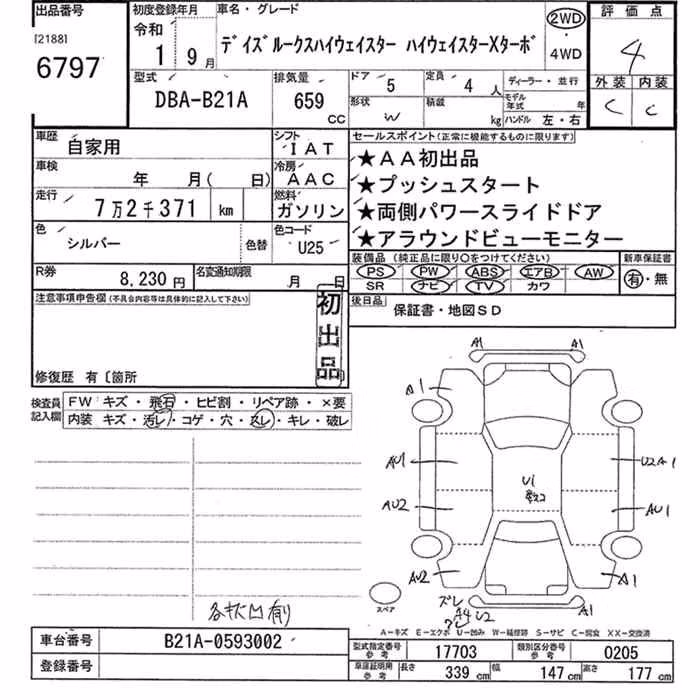 出品番号 初度登録年月 車名・グレード 評価点
[2188] 令和 2WD
6797 1 9月 デイズルークスハイウェイスター ハイウェイスターXターボ ・ 4
4WD
型式 排気量 ドア 5 定員 4人 ディーラー・並行 外装 内装
DBA-B21A 659 CC 形状 W 積載 kg モデル年式 年 C C
ハンドル 左・右
車歴 自家用 シフト IAT セールスポイント(正常に機能するものに限ります)
車検 年 月( 日) 冷房 AAC ★AA初出品
走行 7万2千371 km 燃料 ガソリン ★プッシュスタート
★両側パワースライドドア
色 シルバー 色替 色コード U25 ★アラウンドビューモニター
R券 8,230円 名変通知期限 月 日 装備品 (純正品に限り○をつけてください) 新車保証書
PS PW ABS エアB AW 有・無
SR ナビ TV カワ
注意事項申告欄(不具合内容等は具体的に記入して下さい) 初出品 後日品 保証書・地図SD
修復歴 有〔箇所
検査員記入欄 FW キズ・飛石・ヒビ割・リペア跡・×要
内装 キズ・汚レ・コゲ・穴・スレ・キレ・破レ
A1 A1
A1
AU1 U2A1
U1
AU2 AU1
AU2 A1
スペア ズレ A4 U2 A1
各状凹有
A-キズ E-エクボ U-凹み W-補修跡 S-サビ C-腐食 XX-交換済
車台番号 B21A-0593002 型式指定番号 参考 17703 類別区分番号 参考 0205
登録番号 車庫証明用 参考 長さ 339 cm 幅 147 cm 高さ 177 cm